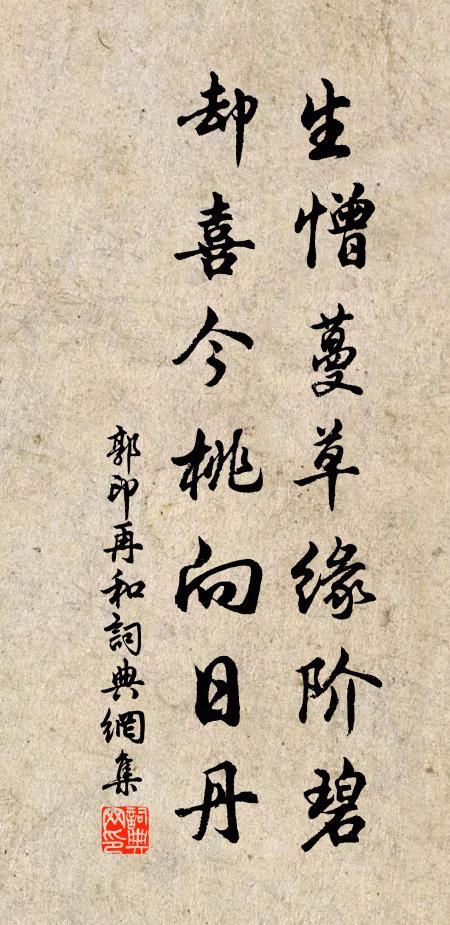 生憎蔓草缘阶碧
却喜今桃向日丹
郭印再和詞典網集
詞典
网印